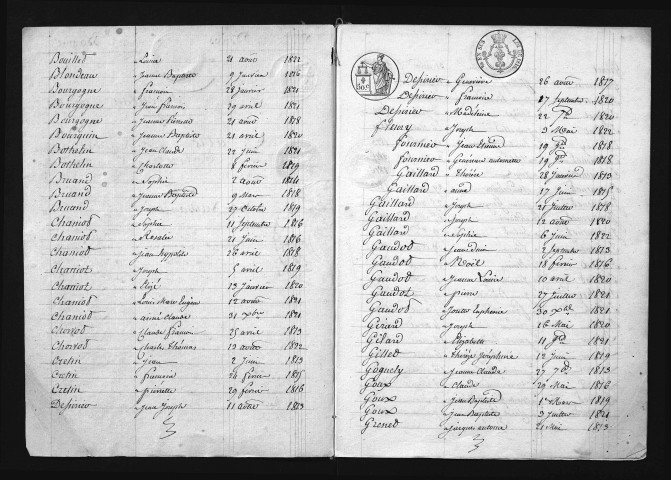 Bouillet Louise 21 août 1822
Blondeau Jeanne Baptiste 9 1816
Bourgogne francois 28 janvier 1821
Bourgogne Jean francois 29 avril 1821
Bourgogne Jeanne 21 août 1818
Bourquin Jeanne Baptiste 21 avril 1820
Bothelin Jean Claude 22 juin 1821
Bothelin Charlotte 8 février 1819
Bruand Sophie 2 août 1814
Bruand Jeanne Baptiste 9 Mai 1818
Bruand Joseph 27 Octobre 1819
Chaniot Sophie 11 Septembre 1816
Chaniot Rosalie 21 Juin 1816
Chaniot Jean hyppolite 26 avril 1818
Chaniot Joseph 5 avril 1819
Chaniot 13 Janvier 1820
Chaniot Louis Marie Eugène 12 août 1821
Chaniot aimé claude 31 Xbre 1821
Chevrot Claude francois 25 avril 1813
Chevrot Charles thomas 19 août 1822
Cretin Jean 2 Juin 1813
Cretin francois 26 février 1815
Cretin pierrette 29 février 1816
Depirier Jean Joseph 11 août 1813
30 C
Depirier Genevieve 26 août 1817
Depirier Francoise 27 Septembre 1820
Depirier Madeleine 22 7bre 1820
fleury Joseph 3 Mai 1822
fournier Jean Etienne 19 9bre 1818
fournier 19 9bre 1818
Gaillard 28 Janvier 1813
Gaillard 17 Juin 1815
Gaillard Joseph 21 Juillet 1818
Gaillard Joseph 12 août 1820
Gaillard Sophie 6 Juin 1822
Gaudot 2 Septembre 1813
Gaudot Noël 18 février 1816
Gaudot Jeanne Louise 10 avril 1820
Gaudot pierre 27 Juillet 1821
Gaudot 30 Xbre 1821
Gérard Joseph 16 Mai 1820
Gélard Elizabeth 11 9bre 1821
Gillet Therèse Josephine 12 Juin 1819
Goguely Jeanne Claude 27 7bre 1813
Goux Claude 29 Mai 1816
Goux Jean Baptiste 1er Mars 1819
Goux Jean Baptiste 3 Juillet 1821
Grenet Jacques antoine 21 Mai 1813